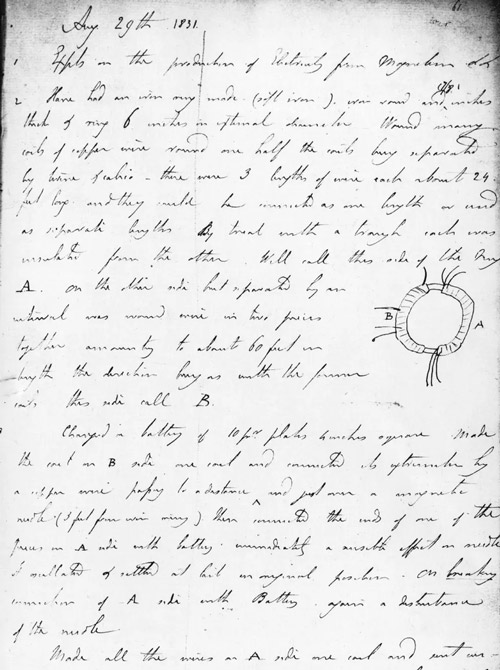 Aug 29th 1831.
1 Expts on the production of Electricity from Magnetism &c &c
2 Have had an iron ring made (soft iron), iron round and 7/8 inches
thick & ring 6 inches in external diameter. Wound many
coils of copper wire round one half the coils being separated
by twine & calico - there were 3 lengths of wire each about 24
feet long and they could be connected as one length or used
as separate lengths. By trial with a trough each was
insulated from the other. Will call this side of the ring
A. on the other side but separated by an
interval was wound wire in two pieces
together amounting to about 60 feet in
length the direction being as with the former
coils this side call B.
B A
Charged a battery of 10 pr plates 4 inches square. Made
the coil on B side one coil and connected its extremities by
a copper wire passing to a distance and just over a magnetic
needle (3 feet from wire ring) then connected the ends of one of the
pieces on A side with battery immediately a sensible effect on needle
It oscillated & settled at last in original position. On breaking
connection of A side with Battery again a disturbance
of the needle
Made all the wires on A side one coil and sent cur-